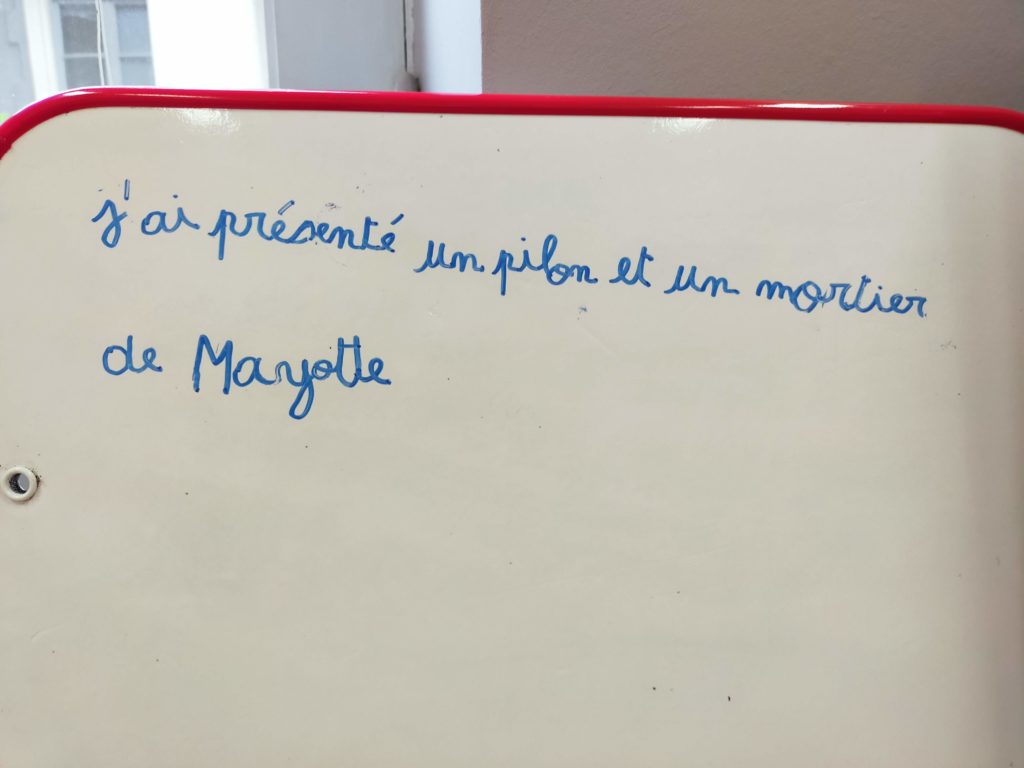 j'ai présenté un pilon et un mortier
de Mayotte